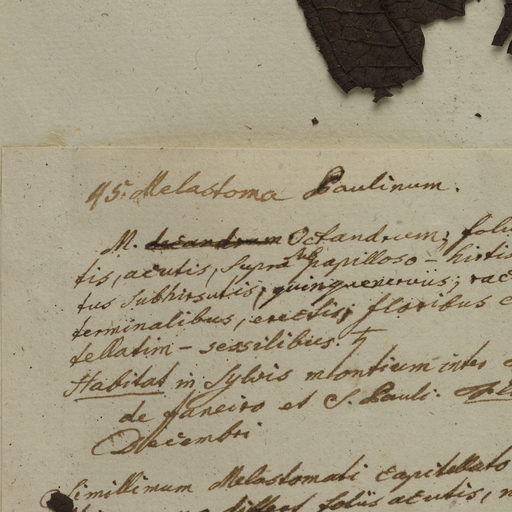 45. Melastoma Paulinum.
M. decandrum Octandrum; foli
tis, acutis, supra sub papilloso-hirtis
tus subhirsutis, quinquenerviis; rac
terminalibus, erectis; floribus c
tellatim-sessilibus. ♄
Habitat in Sylvis montium inter
de Janeiro et S. Pauli.
Decembri
Simillimum Melastomati capitellato
differt foliis acutis,